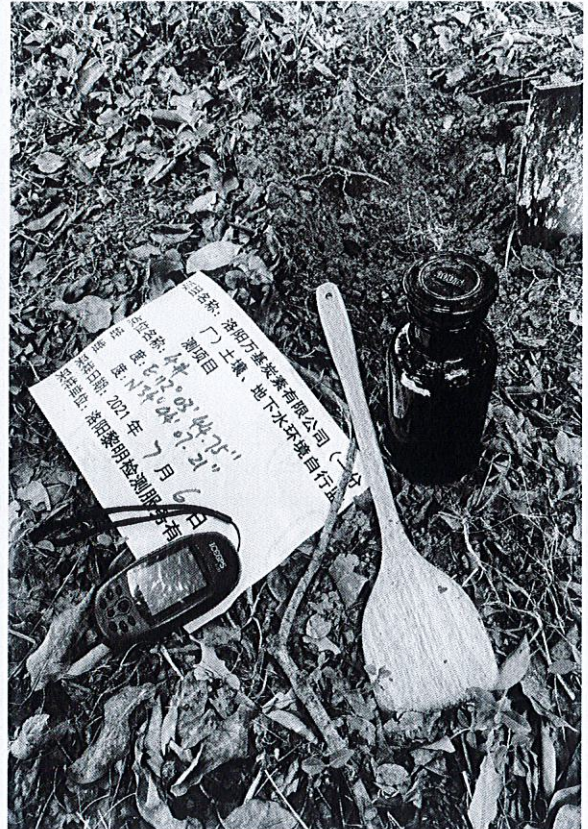 项目名称：洛阳万基炭素有限公司（一分
厂）土壤、地下水环境自行监
测项目
点位名称：4#
经 度：E112°03'44.75"
纬 度：N34°04'07.21"
采样日期：2021年7月6日
采样单位：洛阳黎明检测服务有